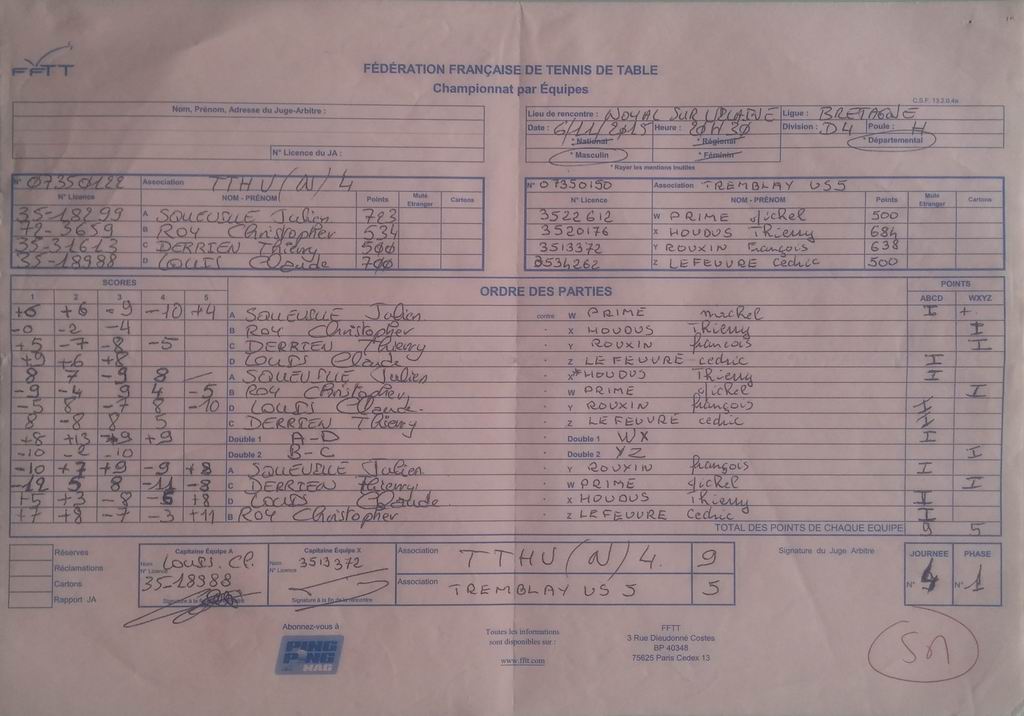 FFTT
FÉDÉRATION FRANÇAISE DE TENNIS DE TABLE
Championnat par Équipes
C.S.F. 13.2.0.4a
Nom, Prénom, Adresse du Juge-Arbitre :
N° Licence du JA :
Lieu de rencontre : NOYAL SUR VILAINE Ligue : BRETAGNE
Date : 6/11/2015 Heure : 20H30 Division : D4 Poule : H
* National * Régional * Départemental
* Masculin * Féminin
* Rayer les mentions inutiles
N° 07350122 Association TTHV (N) 4
N° Licence NOM - PRÉNOM Points Muté Etranger Cartons
35-18299 A SQUEVILLE Julien 723
72-3659 B ROY Christopher 534
35-31613 C DERRIEN Thierry 500
35-18988 D LOUIS Claude 700
N° 07350150 Association TREMBLAY US 5
N° Licence NOM - PRÉNOM Points Muté Etranger Cartons
3522612 W PRIME Michel 500
3520176 X HOUDUS Thierry 684
3513372 Y ROUXIN François 638
3534262 Z LEFEUVRE Cédric 500
SCORES ORDRE DES PARTIES POINTS
1 2 3 4 5 ABCD WXYZ
+6 +6 -9 -10 +4 A SQUEVILLE Julien contre W PRIME michel I
-0 -2 -4 B ROY Christopher X HOUDUS Thierry I
+5 -7 -8 -5 C DERRIEN Thierry Y ROUXIN francois I
+9 +6 +8 D LOUIS Claude Z LEFEUVRE cedric I
8 7 -9 8 A SQUEVILLE Julien X HOUDUS Thierry I
-9 -4 9 4 -5 B ROY Christopher W PRIME Michel I
-5 8 -7 8 -10 D LOUIS Claude. Y ROUXIN françois I
8 -8 8 5 C DERRIEN Thierry Z LEFEUVRE cedric I
+8 +13 +9 Double 1 A-D Double 1 WX I
-10 -2 -10 Double 2 B-C Double 2 YZ I
-10 +7 +9 -9 +8 A SQUEVILLE Julien Y ROUXIN françois I
-12 5 8 -11 -8 C DERRIEN Thierry W PRIME Michel I
+5 +3 -8 -6 +8 D LOUIS Claude X HOUDUS Thierry I
+7 +8 -7 -3 +11 B ROY Christopher Z LEFEUVRE Cedric I
TOTAL DES POINTS DE CHAQUE EQUIPE 9 5
Réserves
Réclamations
Cartons
Rapport JA
Capitaine Équipe A
Nom LOUIS. Cl.
N° Licence 35-18988
Signature à la fin de la rencontre
Capitaine Équipe X
Nom
N° Licence 3513372
Signature à la fin de la rencontre
Association TTHV (N) 4. 9
Association TREMBLAY US 5 5
Signature du Juge Arbitre
JOURNÉE PHASE
N° 4 N° 1
Abonnez-vous à
PING PONG MAG
Toutes les informations
sont disponibles sur :
www.fftt.com
FFTT
3 Rue Dieudonné Costes
BP 40348
75625 Paris Cedex 13